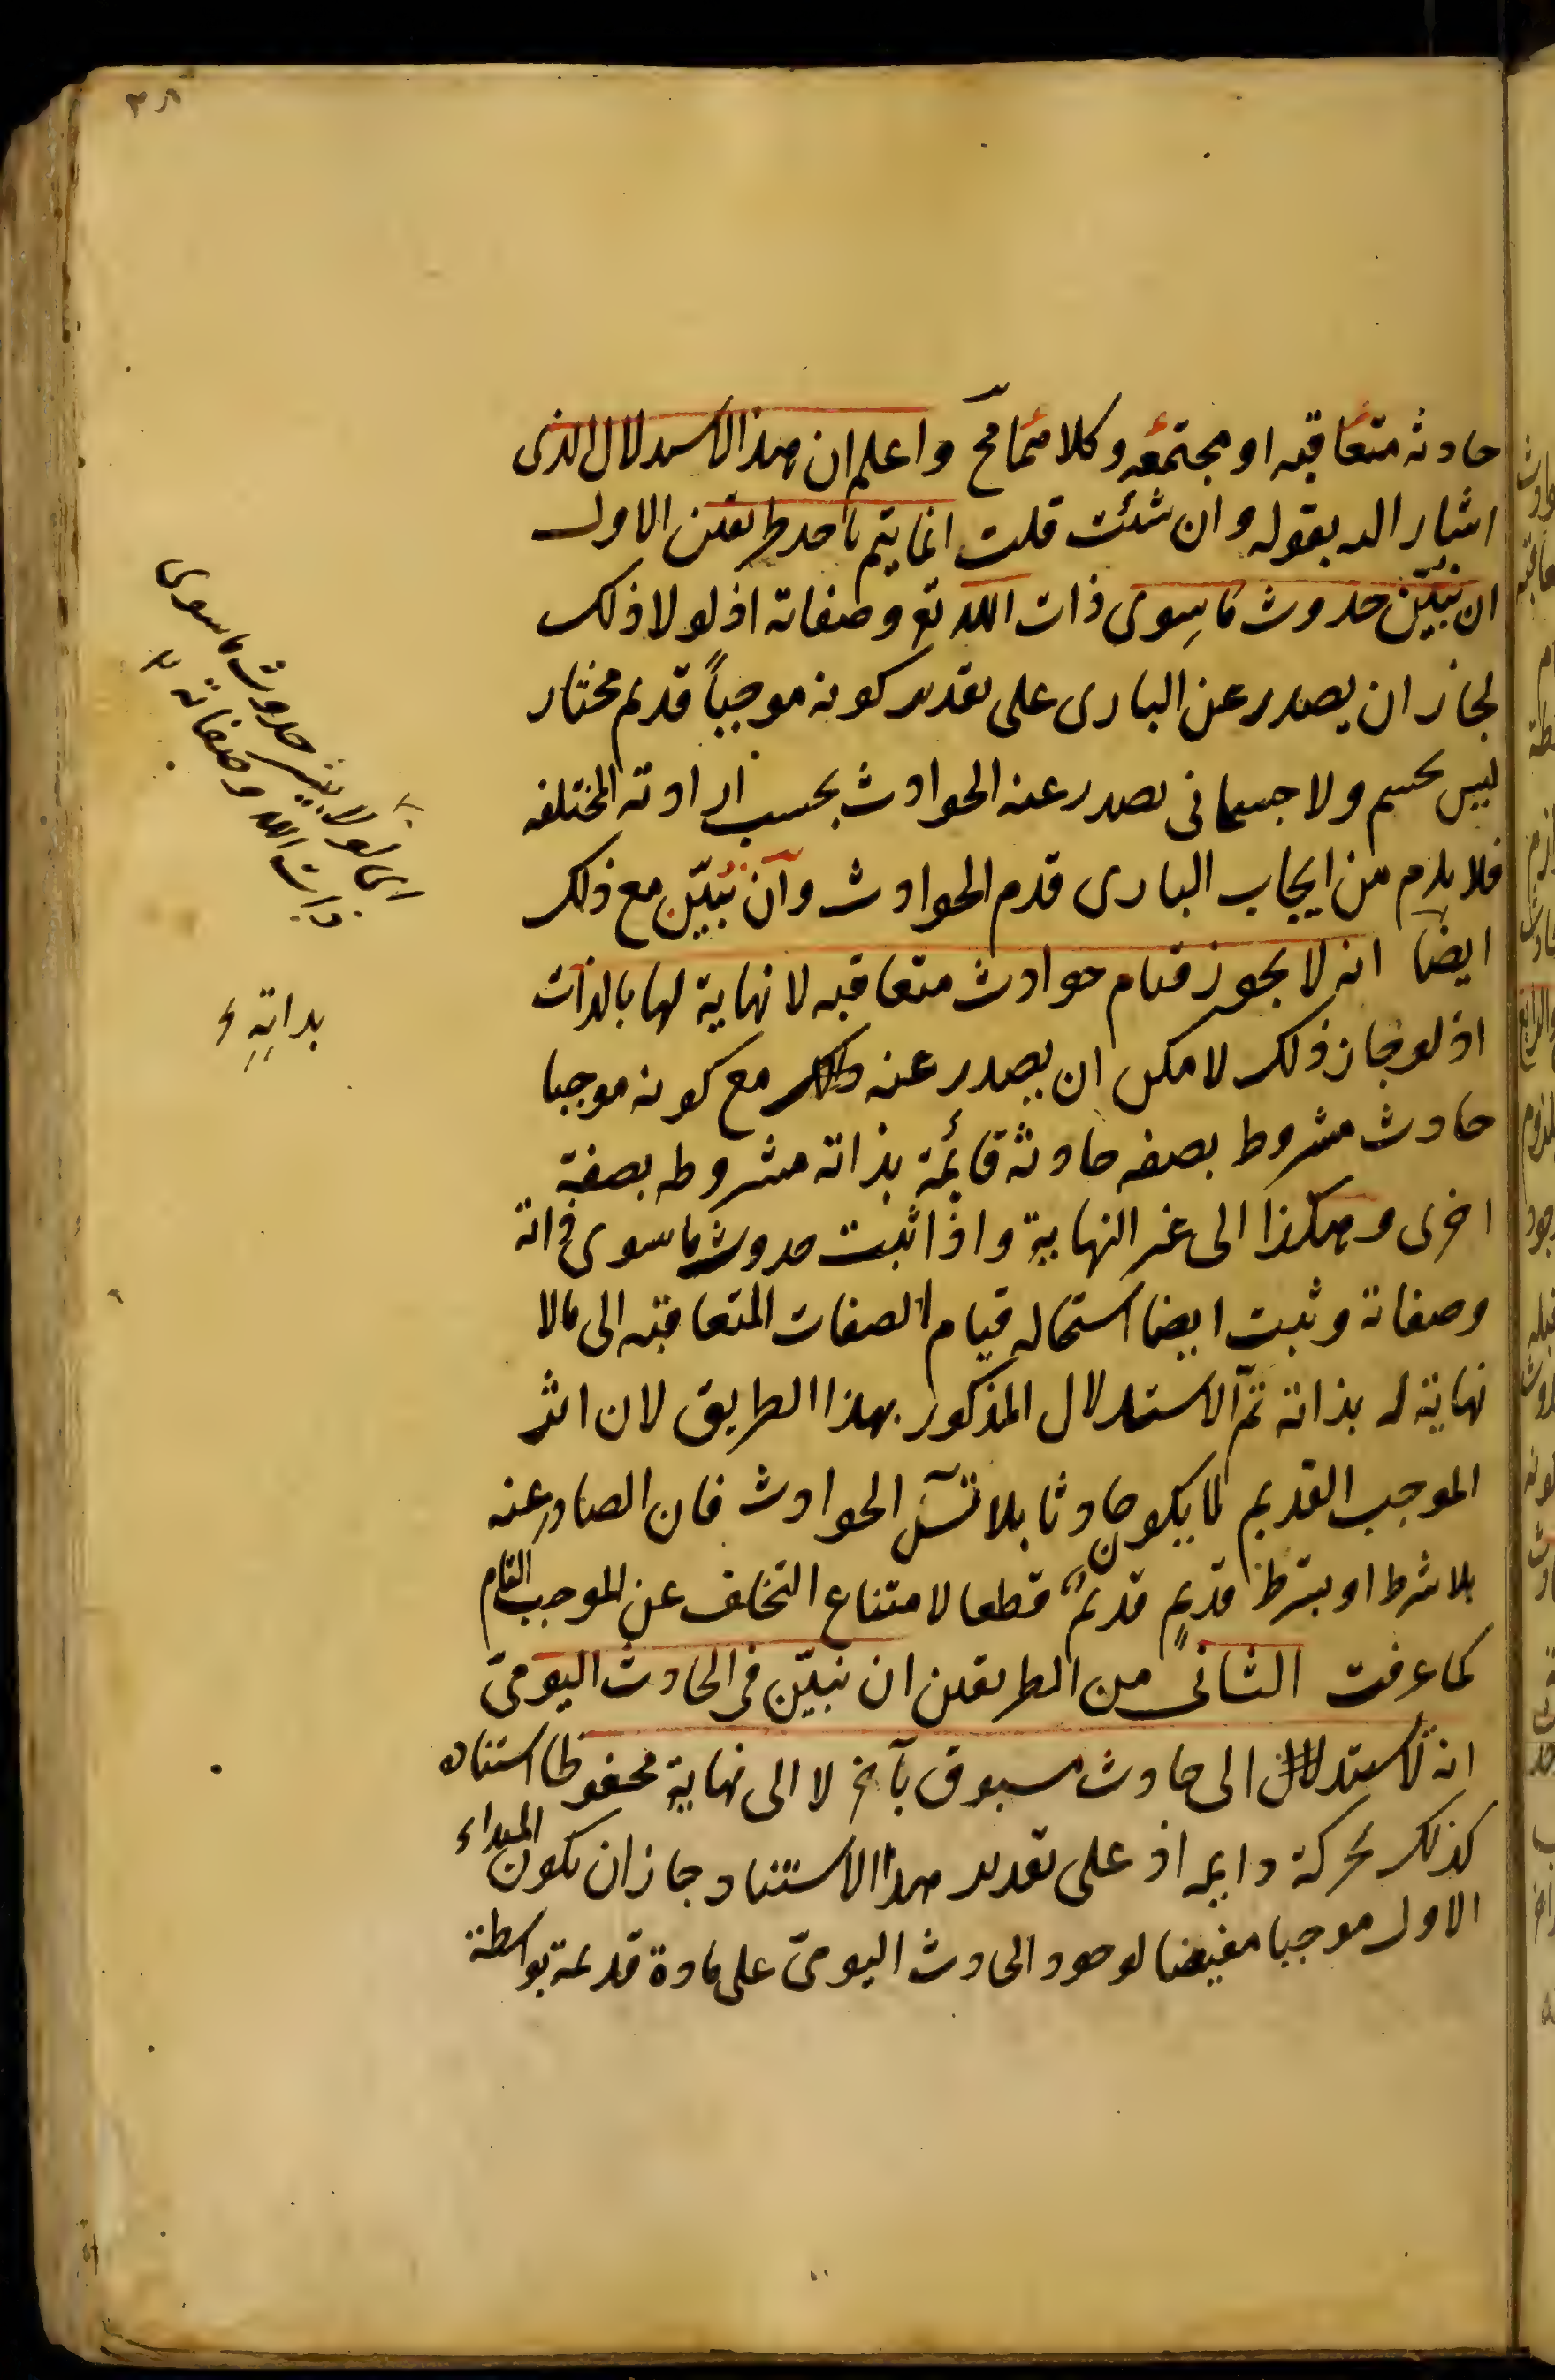 ٣٨
حادثه متعاقبه او مجتمعه وكلاهما مح واعلم ان هذا الاستدلال الذى
اشار اليه بقوله وان شئت قلت انما يتم باحد طريقين الاول
ان نبيّن حدوث ما سِوى ذات الله تع وصفاته اذ لو لا ذلك
لجاز ان يصدر عن البارى على تقدير كونه موجباً قديم مختار
ليس بجسم ولا جسمانى يصدر عنه الحوادث بحسب ارادته المختلفه
فلا يلزم من ايجاب البارى قدم الحوادث وان نبيّن مع ذلك
ايضا انه لا يجوز قيام حوادث متعاقبه لا نهاية لها بالذات
اذ لو جاز ذلك لامكن ان يصدر عنه مع كونه موجبا
حادث مشروط بصفه حادثه قائمة بذاته مشروطه بصفة
اخرى وهكذا الى غير النهاية واذا ثبت حدوث ما سوى ذاته
وصفاته وثبت ايضا استحاله قيام الصفات المتعاقبه الى ما لا
نهاية له بذاته تمّ الاستدلال المذكور بهذا الطريق لان اثر
الموجب القديم لا يكون حادثا بلا تسل الحوادث فان الصادر عنه
بلا شرط او بشرط قديمٍ قديمٌ قطعا لامتناع التخلف عن الموجب التام
كما عرفت الثانى من الطريقين ان نبيّن فى الحادث اليومىّ
انه لا يستند الى حادث مسبوق بآخر لا الى نهاية محفوظا استناده
كذلك بحركة دايمه اذ على تقدير هذا الاستناد جاز ان يكون المبداء
الاول موجبا مفيضا لوجود الحادث اليومىّ على مادة قديمة بواسطة
اى لو لا يبين حدوث ما سوى
ذات الله وصفاته
بذاتِهِ